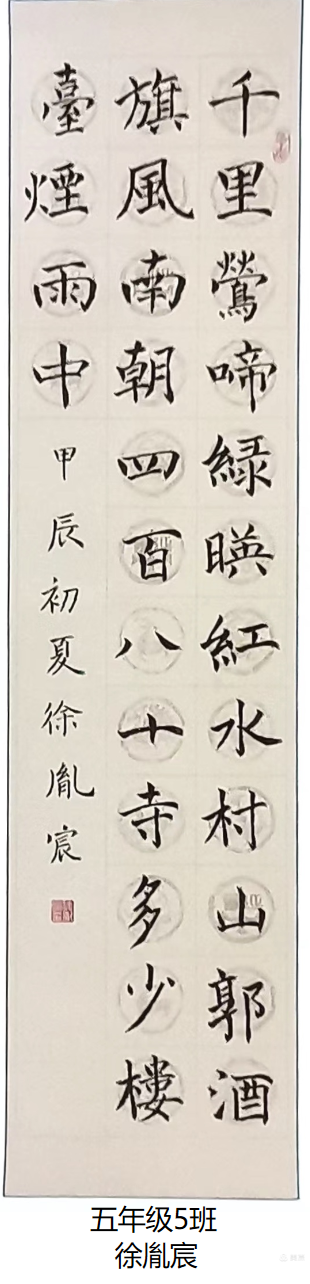 千里鶯啼緑暎紅水村山郭酒
旗風南朝四百八十寺多少樓
臺煙雨中
甲辰初夏徐胤宸
五年级5班
徐胤宸